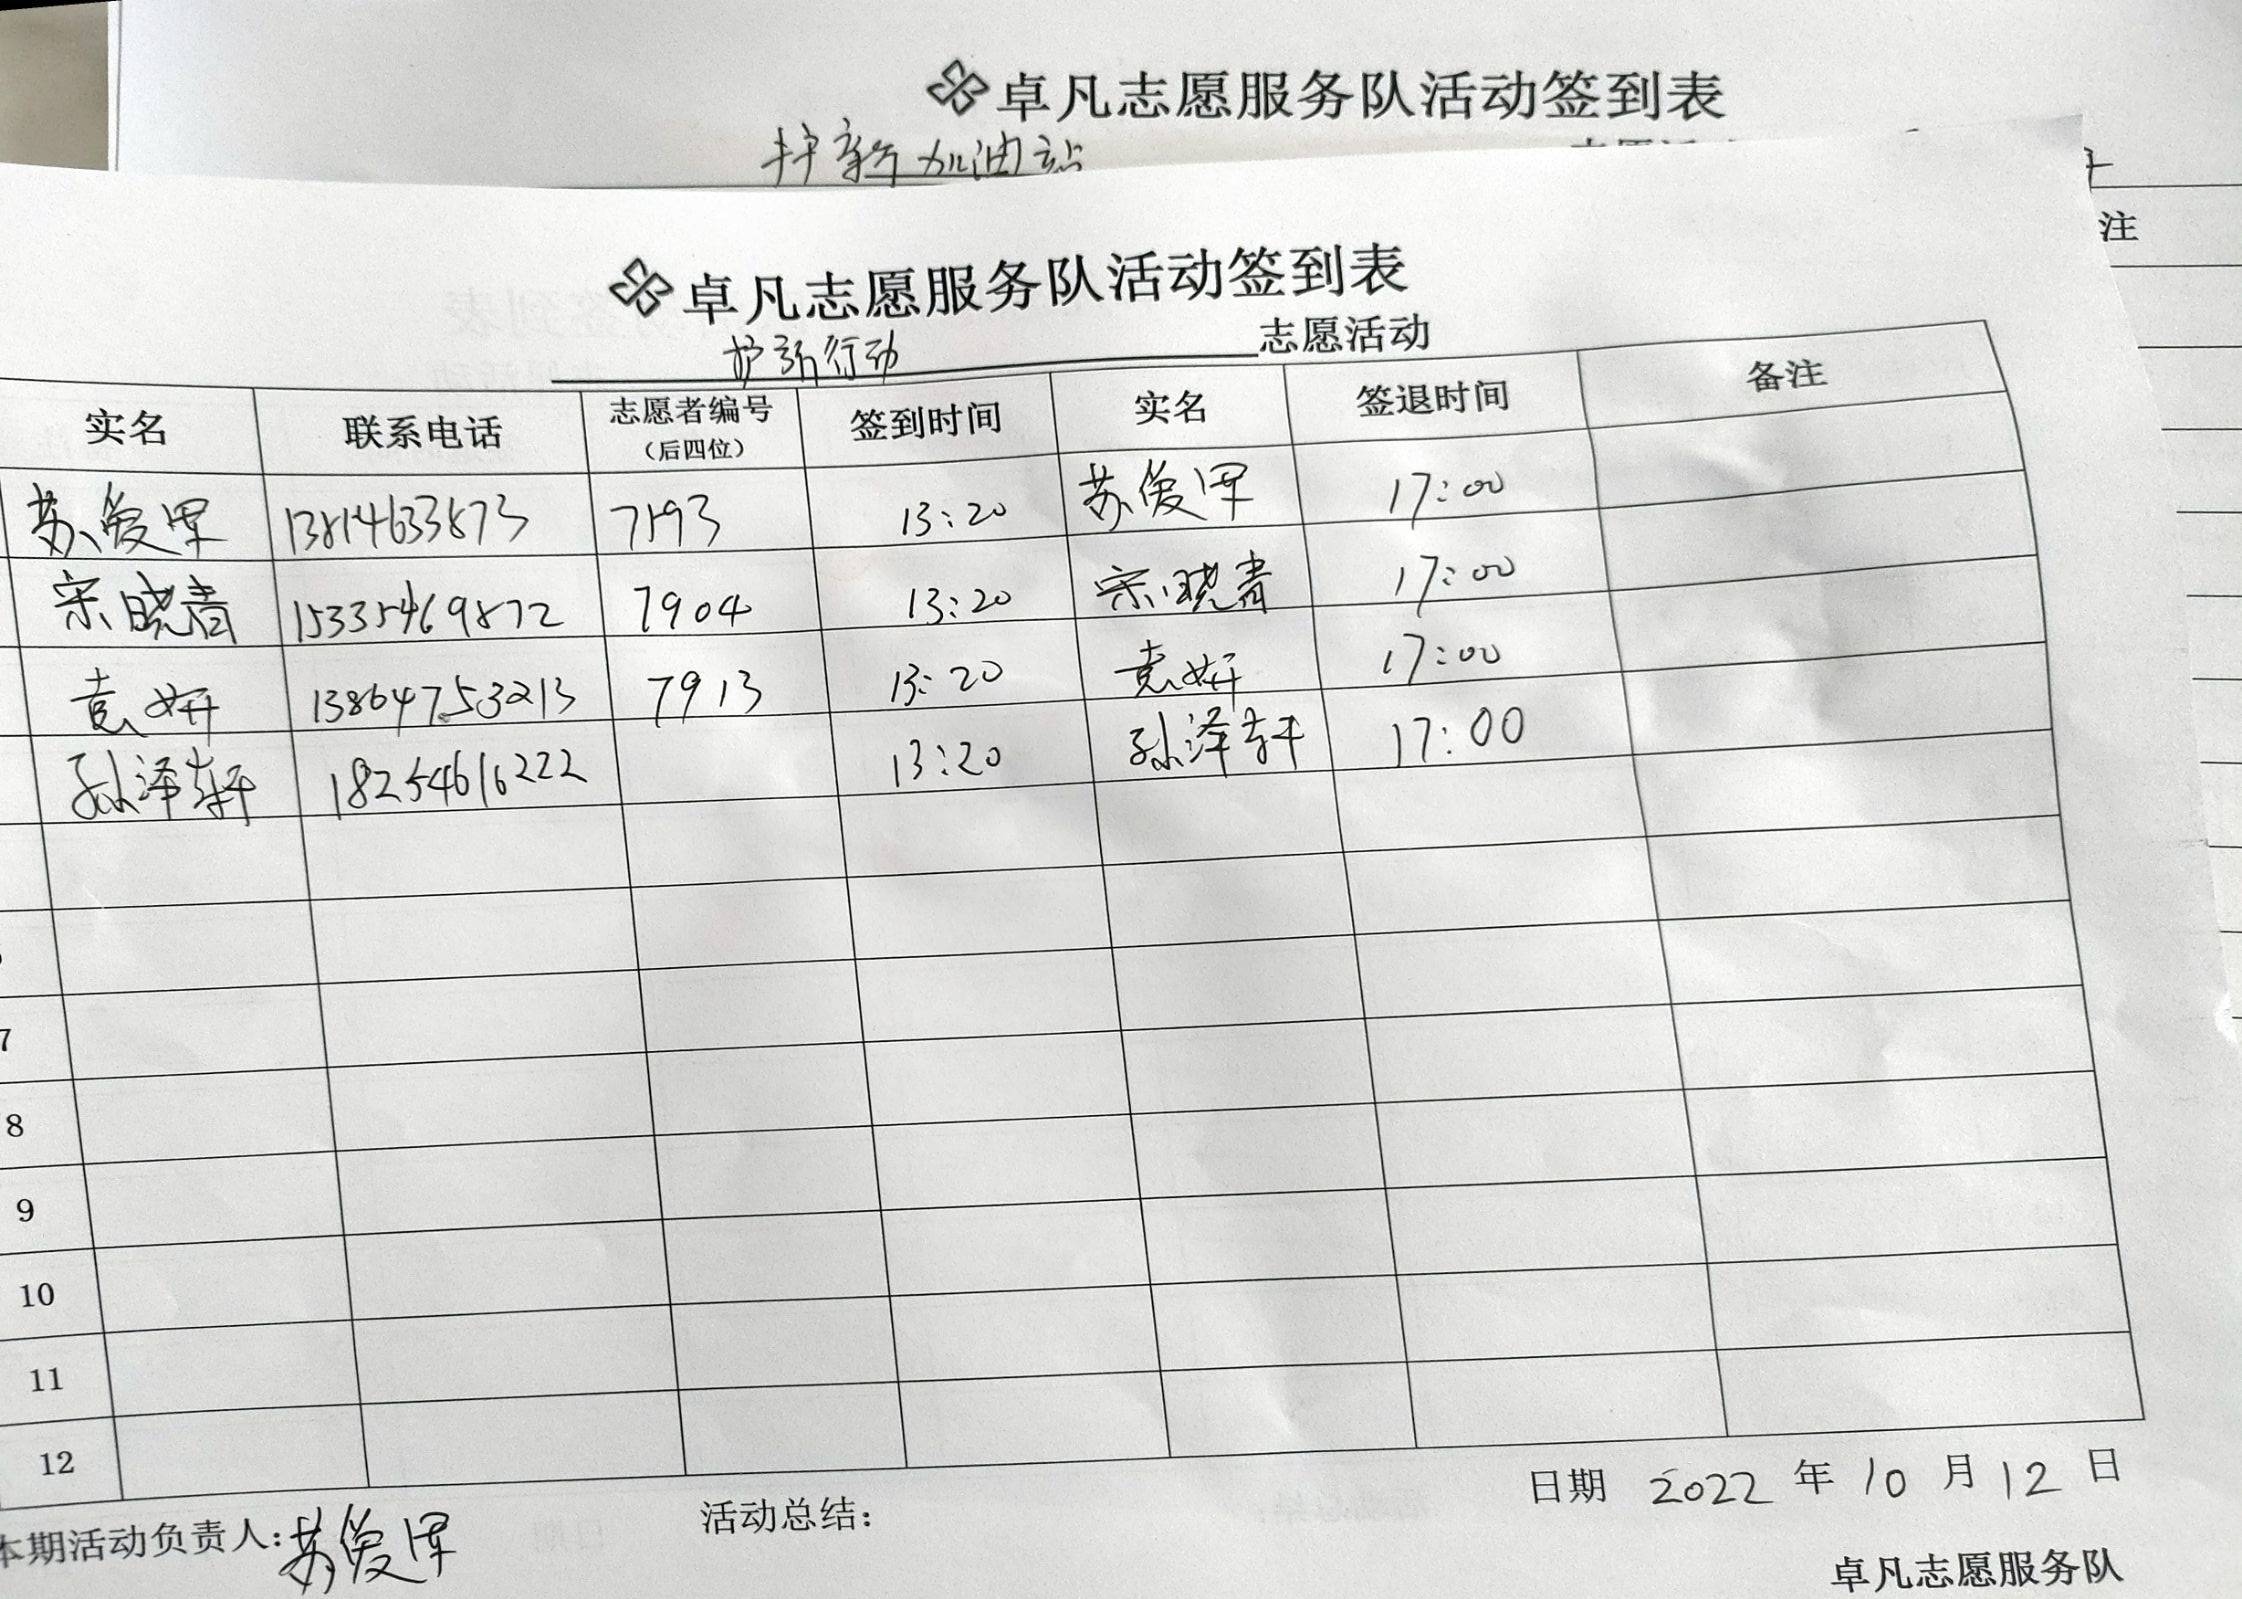 卓凡志愿服务队活动签到表
护新加油站
注
卓凡志愿服务队活动签到表
护新行动 志愿活动
实名 联系电话 志愿者编号（后四位） 签到时间 实名 签退时间 备注
苏俊军 13814633873 7193 13:20 苏俊军 17:00
宋晓青 15335469872 7904 13:20 宋晓青 17:00
袁妍 13864753213 7913 13:20 袁妍 17:00
孙泽轩 18254616222 13:20 孙泽轩 17:00
7
8
9
10
11
12
日期 2022 年 10 月 12 日
本期活动负责人:苏俊军 活动总结:
卓凡志愿服务队